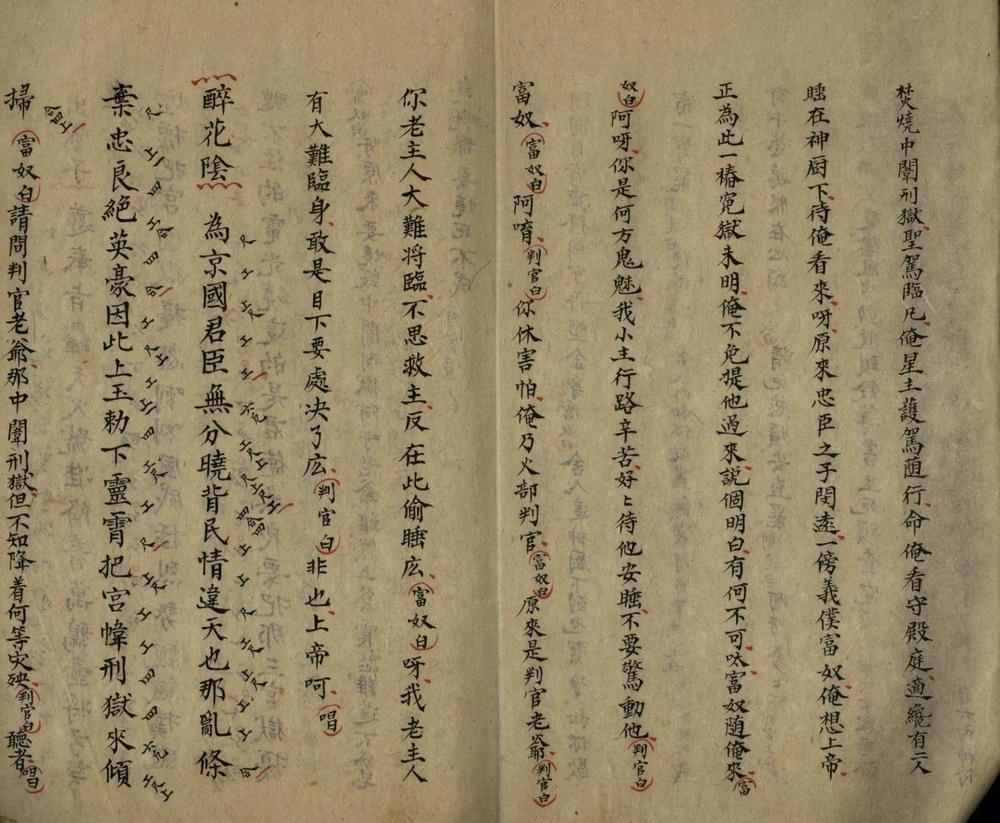 焚燒中闈刑獄聖駕臨凡俺星主護駕随行命俺看守殿庭適纔有二人
睡在神厨下待俺看來呀原來忠臣之子閔遠一傍義僕富奴俺想上帝
正為此一樁寃獄未明俺不免提他過來說個明白有何不可呔富奴随俺來富
奴白阿呀你是何方鬼魅我小主行路辛苦好〻待他安睡不要驚動他判官白
富奴富奴白阿唷判官白你休害怕俺乃火部判官富奴白原來是判官老爺判官白
你老主人大難将臨不思救主反在此偷睡広富奴白呀我老主人
有大難臨身敢是目下要處决了広判官白非也上帝呵唱
醉花陰 為京國君臣無分曉背民情違天也那亂條
棄忠良絕英豪因此上玉勅下靈霄把宮幃刑獄來傾
掃富奴白請問判官老爺那中闈刑獄但不知降着何等灾殃判官白聽者唱